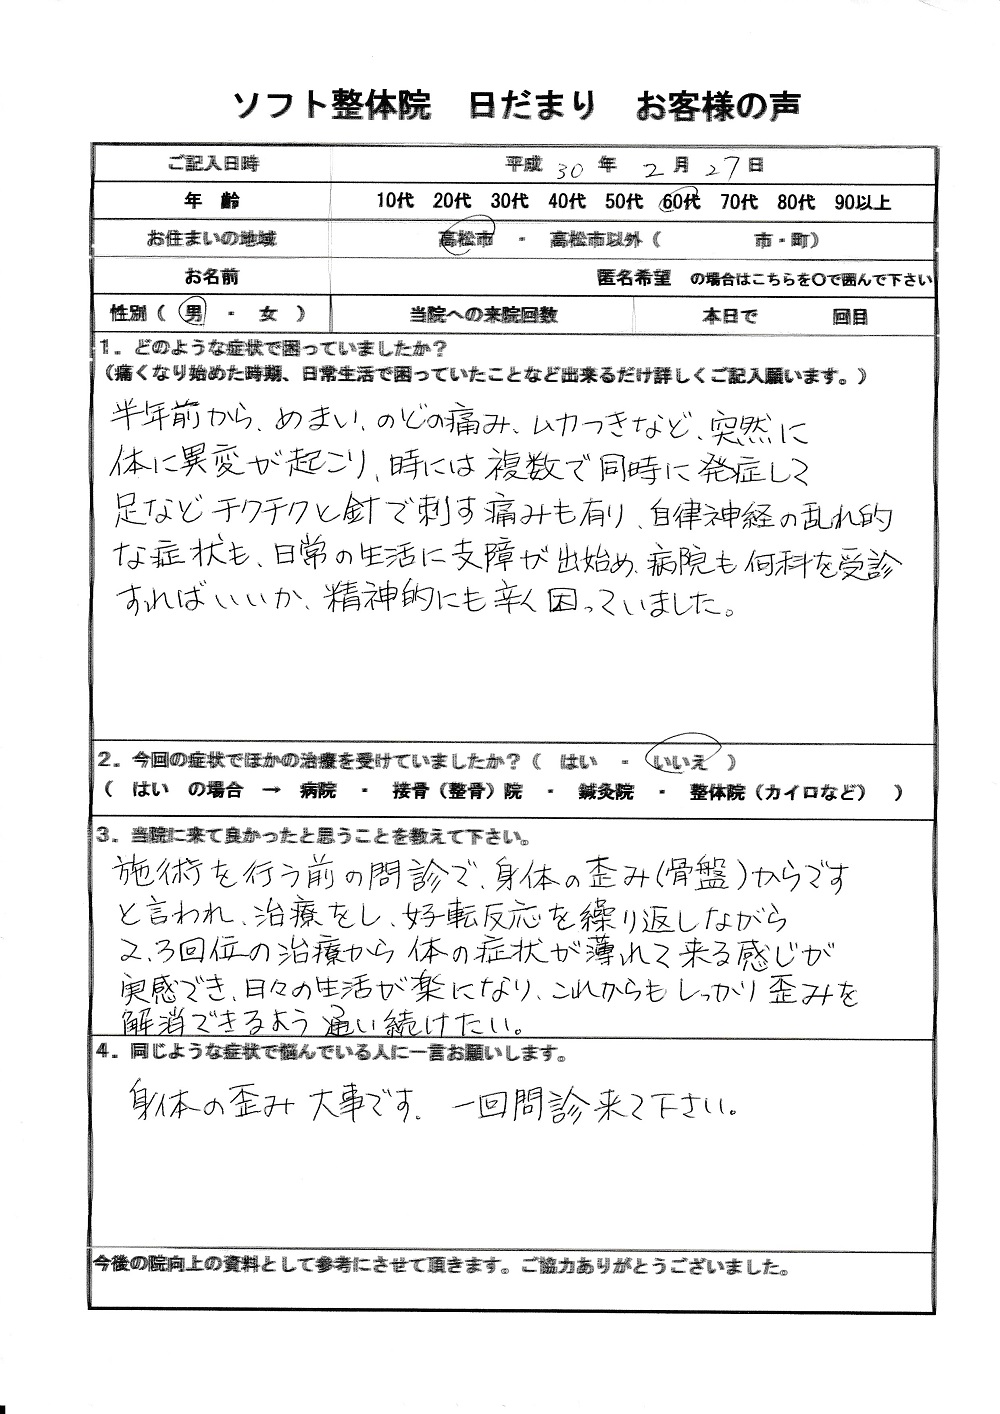 ソフト整体院　日だまり　お客様の声
ご記入日時　平成 30 年 2 月 27 日
年　齢　10代　20代　30代　40代　50代　60代　70代　80代　90以上
お住まいの地域　高松市　・　高松市以外（　　　　市・町）
お名前　匿名希望　の場合はこちらを〇で囲んで下さい
性別（　男　・　女　）　当院への来院回数　本日で　　　回目
1．どのような症状で困っていましたか？
（痛くなり始めた時期、日常生活で困っていたことなど出来るだけ詳しくご記入願います。）
半年前から、めまい、のどの痛み、ムカつきなど、突然に
体に異変が起こり、時には複数で同時に発症して
足などチクチクと針で刺す痛みも有り、自律神経の乱れ的
な症状も、日常の生活に支障が出始め、病院も何科を受診
すればいいか、精神的にも辛く困っていました。
2．今回の症状でほかの治療を受けていましたか？（　はい　・　いいえ　）
（　はい　の場合　→　病院　・　接骨（整骨）院　・　鍼灸院　・　整体院（カイロなど）　）
3．当院に来て良かったと思うことを教えて下さい。
施術を行う前の問診で、身体の歪み（骨盤）からです
と言われ、治療をし、好転反応を繰り返しながら
2、3回位の治療から体の症状が薄れて来る感じが
実感でき、日々の生活が楽になり、これからもしっかり歪みを
解消できるよう通い続けたい。
4．同じような症状で悩んでいる人に一言お願いします。
身体の歪み大事です。一回問診来て下さい。
今後の院向上の資料として参考にさせて頂きます。ご協力ありがとうございました。